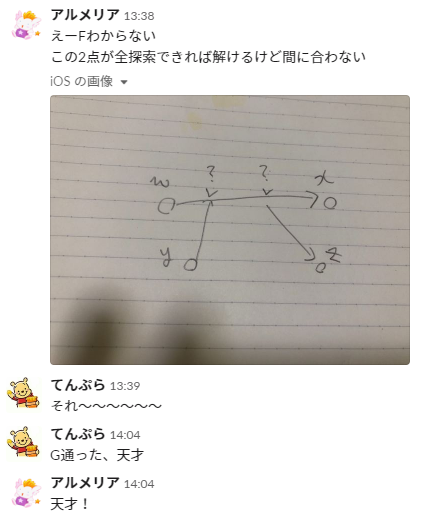 アルメリア 13:38
えーFわからない
この2点が全探索できれば解けるけど間に合わない
iOS の画像
w ? ? x
y z
てんぷら 13:39
それ〜〜〜〜〜〜
てんぷら 14:04
G通った、天才
アルメリア 14:04
天才！